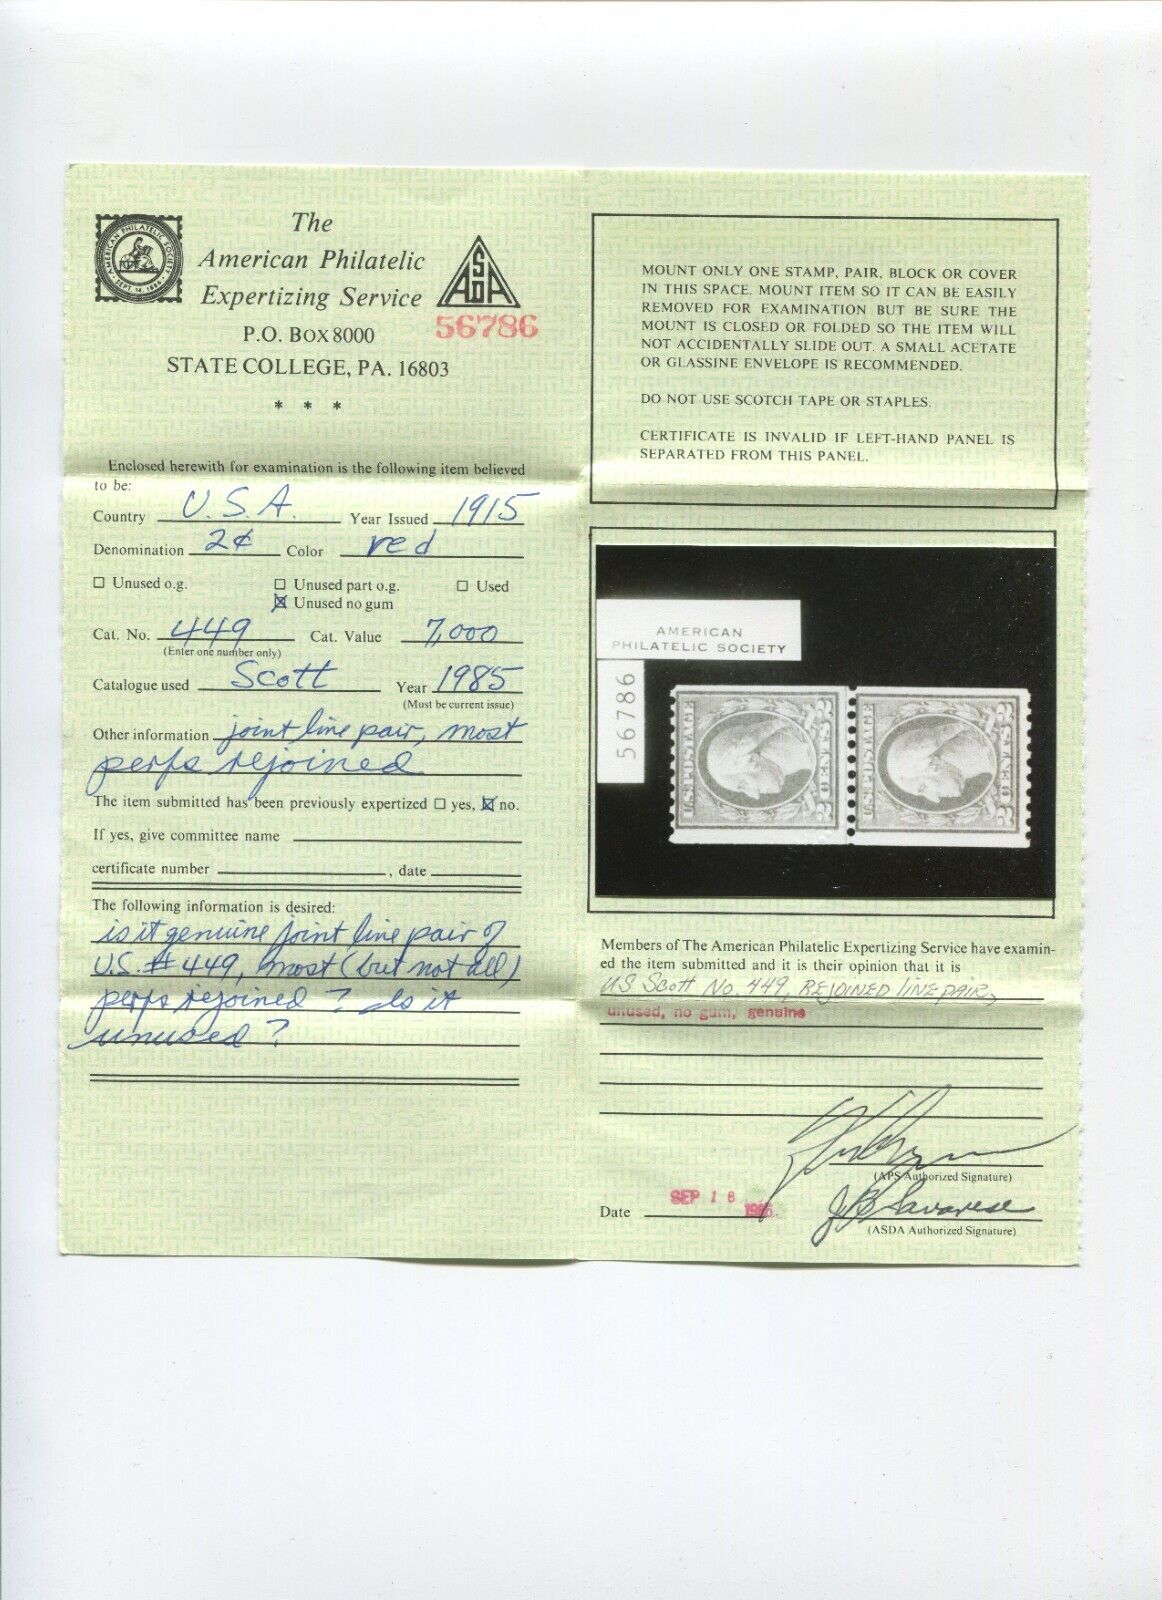 The
American Philatelic
Expertizing Service
P.O. BOX 8000
STATE COLLEGE, PA. 16803
* * *
AMERICAN PHILATELIC SOCIETY
SEPT. 14, 1886
ASDA
56786
Enclosed herewith for examination is the following item believed
to be:
Country U.S.A. Year Issued 1915
Denomination 2¢ Color red
☐ Unused o.g. ☐ Unused part o.g. ☐ Used
☒ Unused no gum
Cat. No. 449 Cat. Value 7,000
(Enter one number only)
Catalogue used Scott Year 1985
(Must be current issue)
Other information joint line pair, most
perfs rejoined
The item submitted has been previously expertized ☐ yes, ☒ no.
If yes, give committee name
certificate number , date
The following information is desired:
is it genuine joint line pair of
U.S. #449, most (but not all)
perfs rejoined? Is it
unused?
MOUNT ONLY ONE STAMP, PAIR, BLOCK OR COVER
IN THIS SPACE. MOUNT ITEM SO IT CAN BE EASILY
REMOVED FOR EXAMINATION BUT BE SURE THE
MOUNT IS CLOSED OR FOLDED SO THE ITEM WILL
NOT ACCIDENTALLY SLIDE OUT. A SMALL ACETATE
OR GLASSINE ENVELOPE IS RECOMMENDED.
DO NOT USE SCOTCH TAPE OR STAPLES.
CERTIFICATE IS INVALID IF LEFT-HAND PANEL IS
SEPARATED FROM THIS PANEL.
AMERICAN
PHILATELIC SOCIETY
56786
U.S. POSTAGE
2 CENTS 2
U.S. POSTAGE
2 CENTS 2
Members of The American Philatelic Expertizing Service have examin-
ed the item submitted and it is their opinion that it is
US Scott No. 449, REJOINED LINE PAIR,
unused, no gum, genuine
(APS Authorized Signature)
Date SEP 18 J B Savarese
(ASDA Authorized Signature)